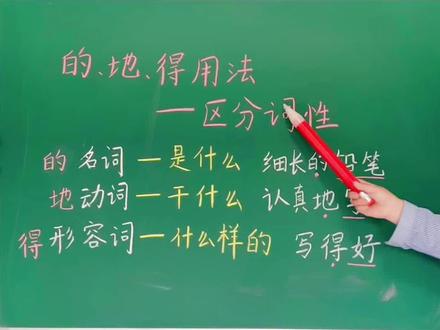 的、地、得用法
一区分词性
的名词一是什么 细长的铅笔
地动词一干什么 认真地
得形容词一什么样的 写得好